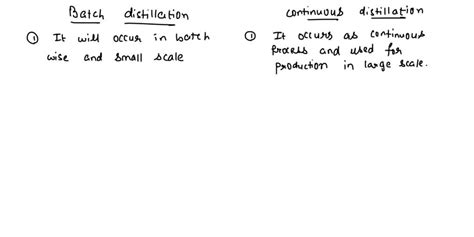 Batch distillation
① It will occur in batch
wise and small scale
continuous distillation
① It occurs as continuous
Process and used for
production in large scale.